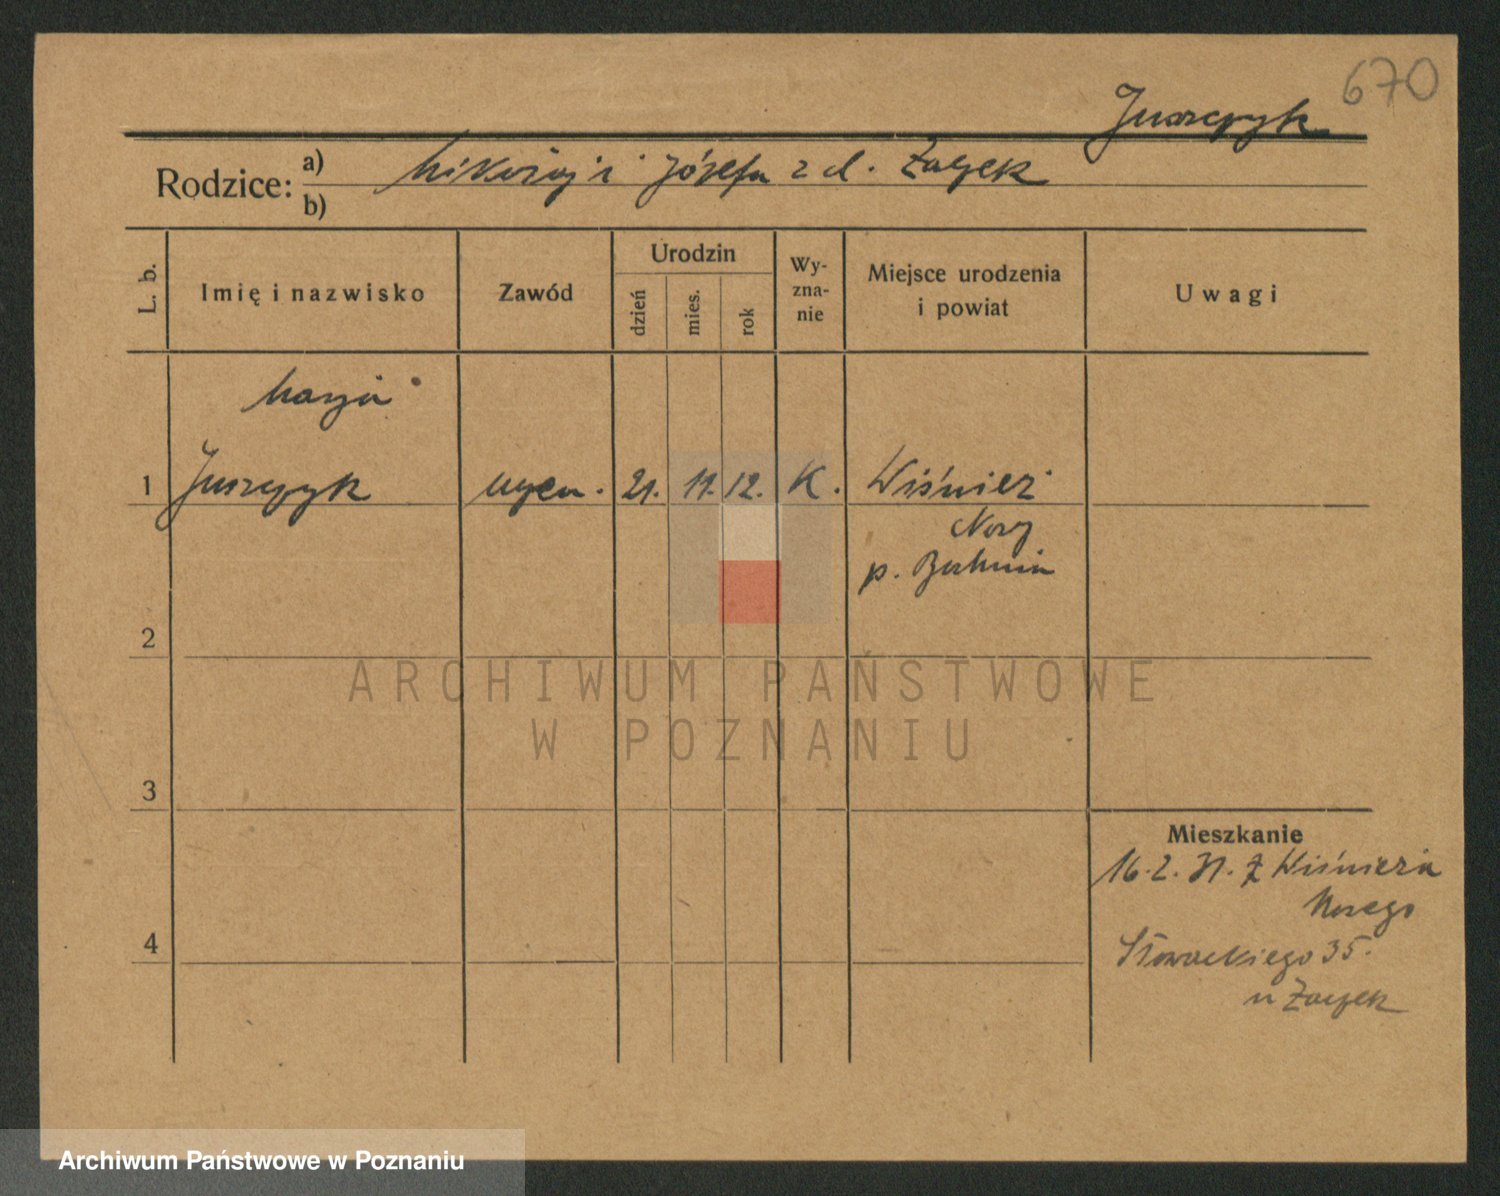 670
Juszczyk
Rodzice: a) Mikołaj i Józefa z d. Zacyek
b)
L. b.
Imię i nazwisko
Zawód
Urodzin
dzień
mies.
rok
Wy-
zna-
nie
Miejsce urodzenia
i powiat
Uwagi
Marja
1 Juszczyk uczen. 21. 11. 12. K. Wiśnicz
Nowy
p. Bochnia
2
3
4
Mieszkanie
16.2.31. z Wiśnicza
Nowego
Słowackiego 35.
u Zacyek
ARCHIWUM PAŃSTWOWE
W POZNANIU
Archiwum Państwowe w Poznaniu